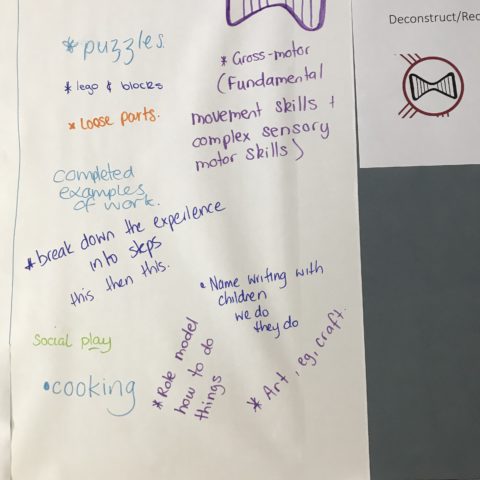 * puzzles.
* lego & blocks
* Loose parts.
completed
examples
of work.
* break down the experience
into steps
this then this.
Social play
• cooking
* Gross-motor
(Fundamental
movement skills +
complex sensory
motor skills)
• Name writing with
children
we do
they do
* Role model
how to do
things
* Art, eg, craft.
Deconstruct/Rec